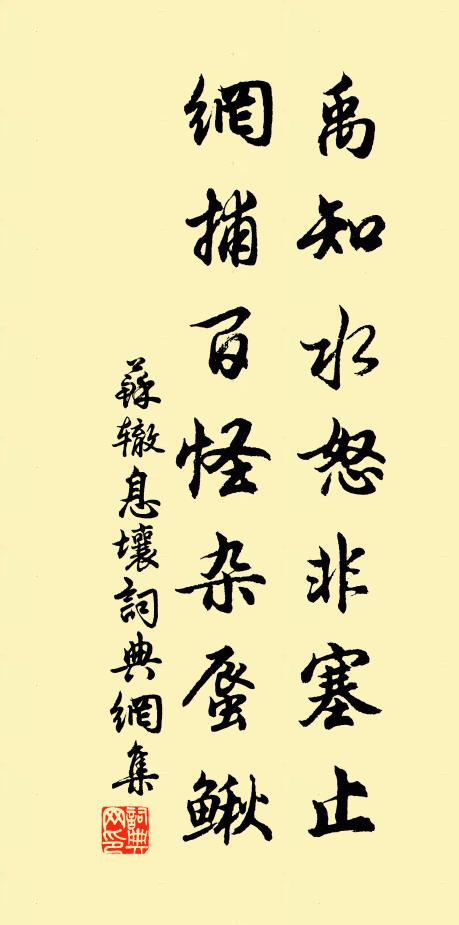 禹知水怒非塞止
網捕百怪杂蜃鳅
蘇辙息壤詞典網集
詞典网印